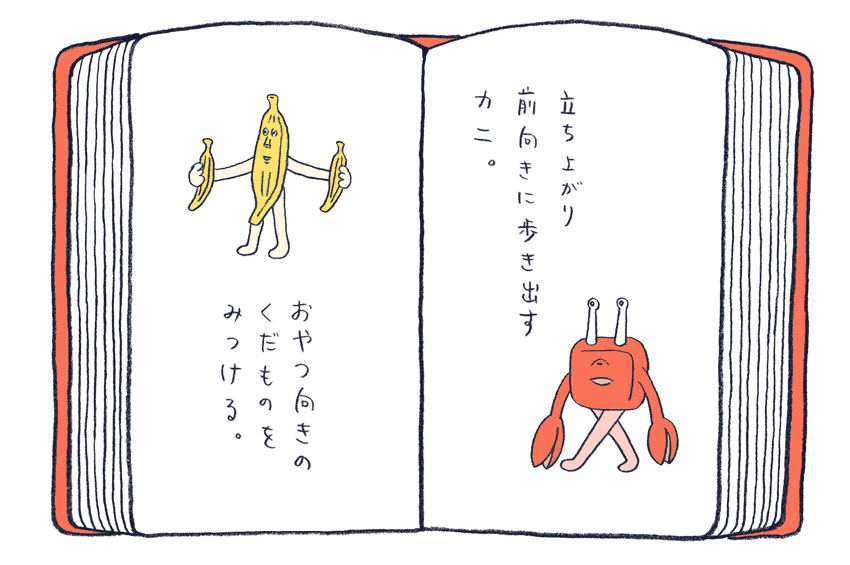 立ち上がり
前向きに歩き出す
カニ。
おやつ向きの
くだものを
みつける。